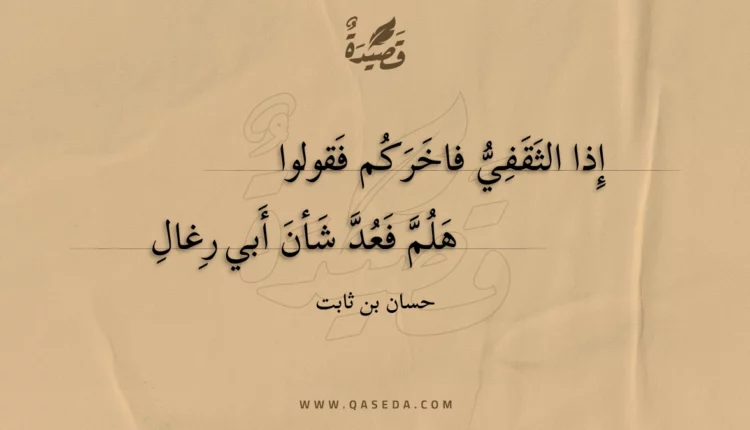 قَصِيدَةٌ
إِذا الثَقَفِيُّ فاخَرَكُم فَقولوا
هَلُمَّ فَعُدَّ شَأنَ أَبي رِغالِ
حسان بن ثابت
WWW.QASEDA.COM